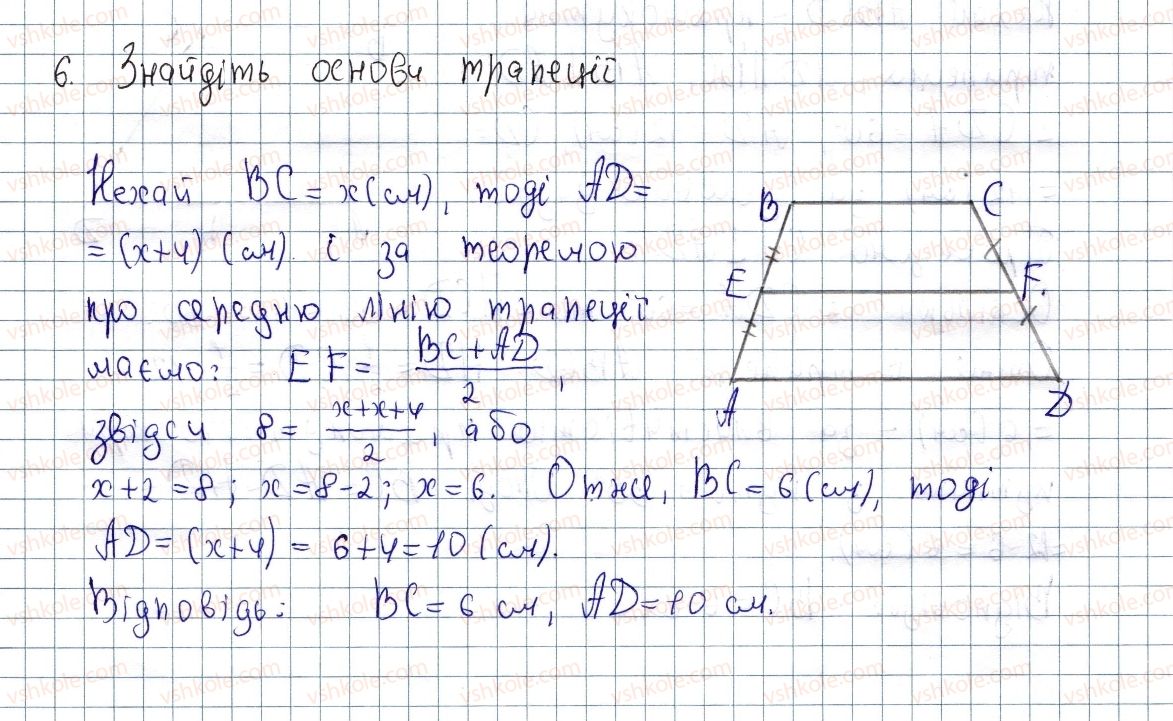 6. Знайдіть основи трапеції
Нехай BC = x (см), тоді AD =
= (x+4) (см) і за теоремою
про середню лінію трапеції
маємо: EF = (BC + AD)/2,
звідси 8 = (x+x+4)/2, або
x+2=8; x=8-2; x=6. Отже, BC = 6 (см), тоді
AD = (x+4) = 6+4=10 (см).
Відповідь: BC = 6 см, AD = 10 см.
B C
E F.
A D
vshkole.com